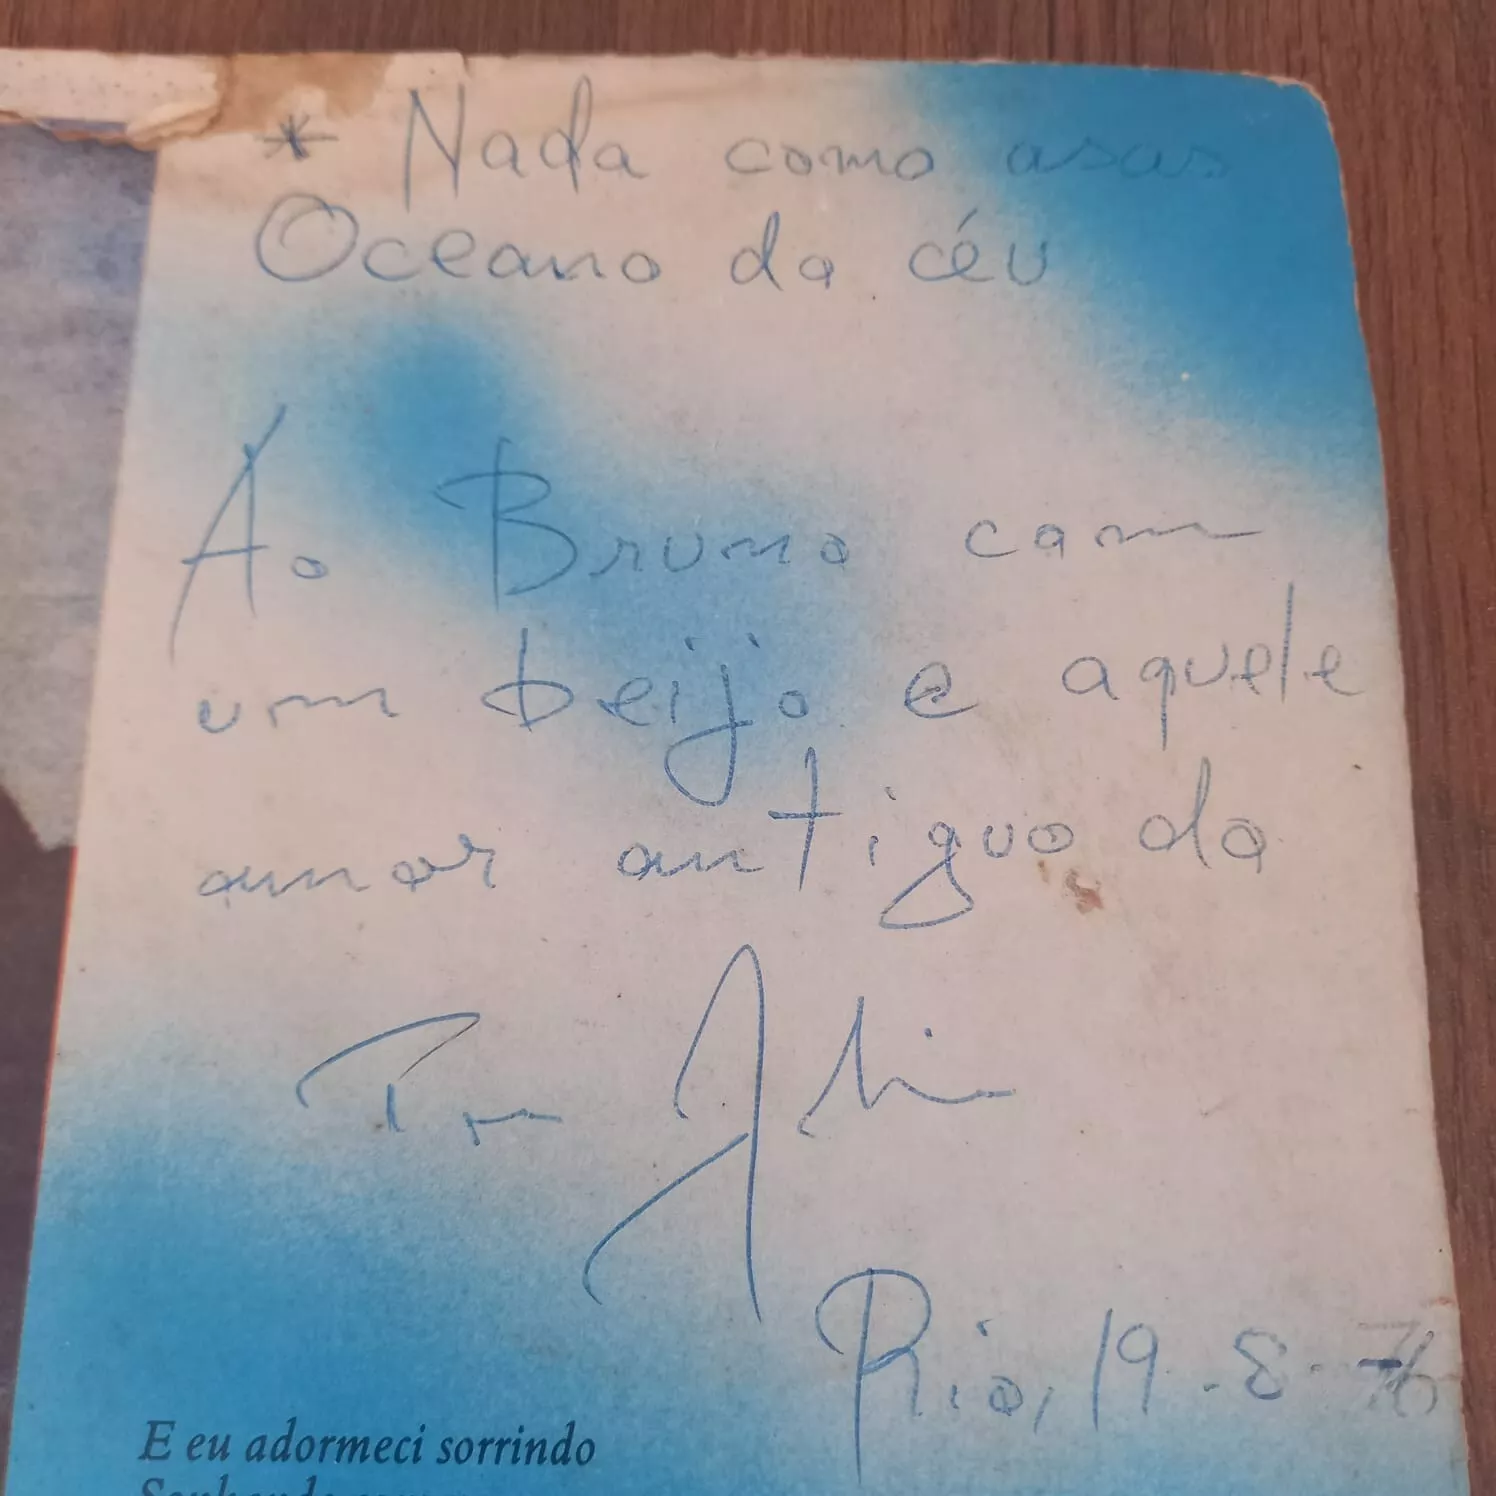 * Nada como asas
Oceano do céu
Ao Bruno com
um beijo e aquele
amor antiguo do
Rio, 19.8.76
E eu adormeci sorrindo